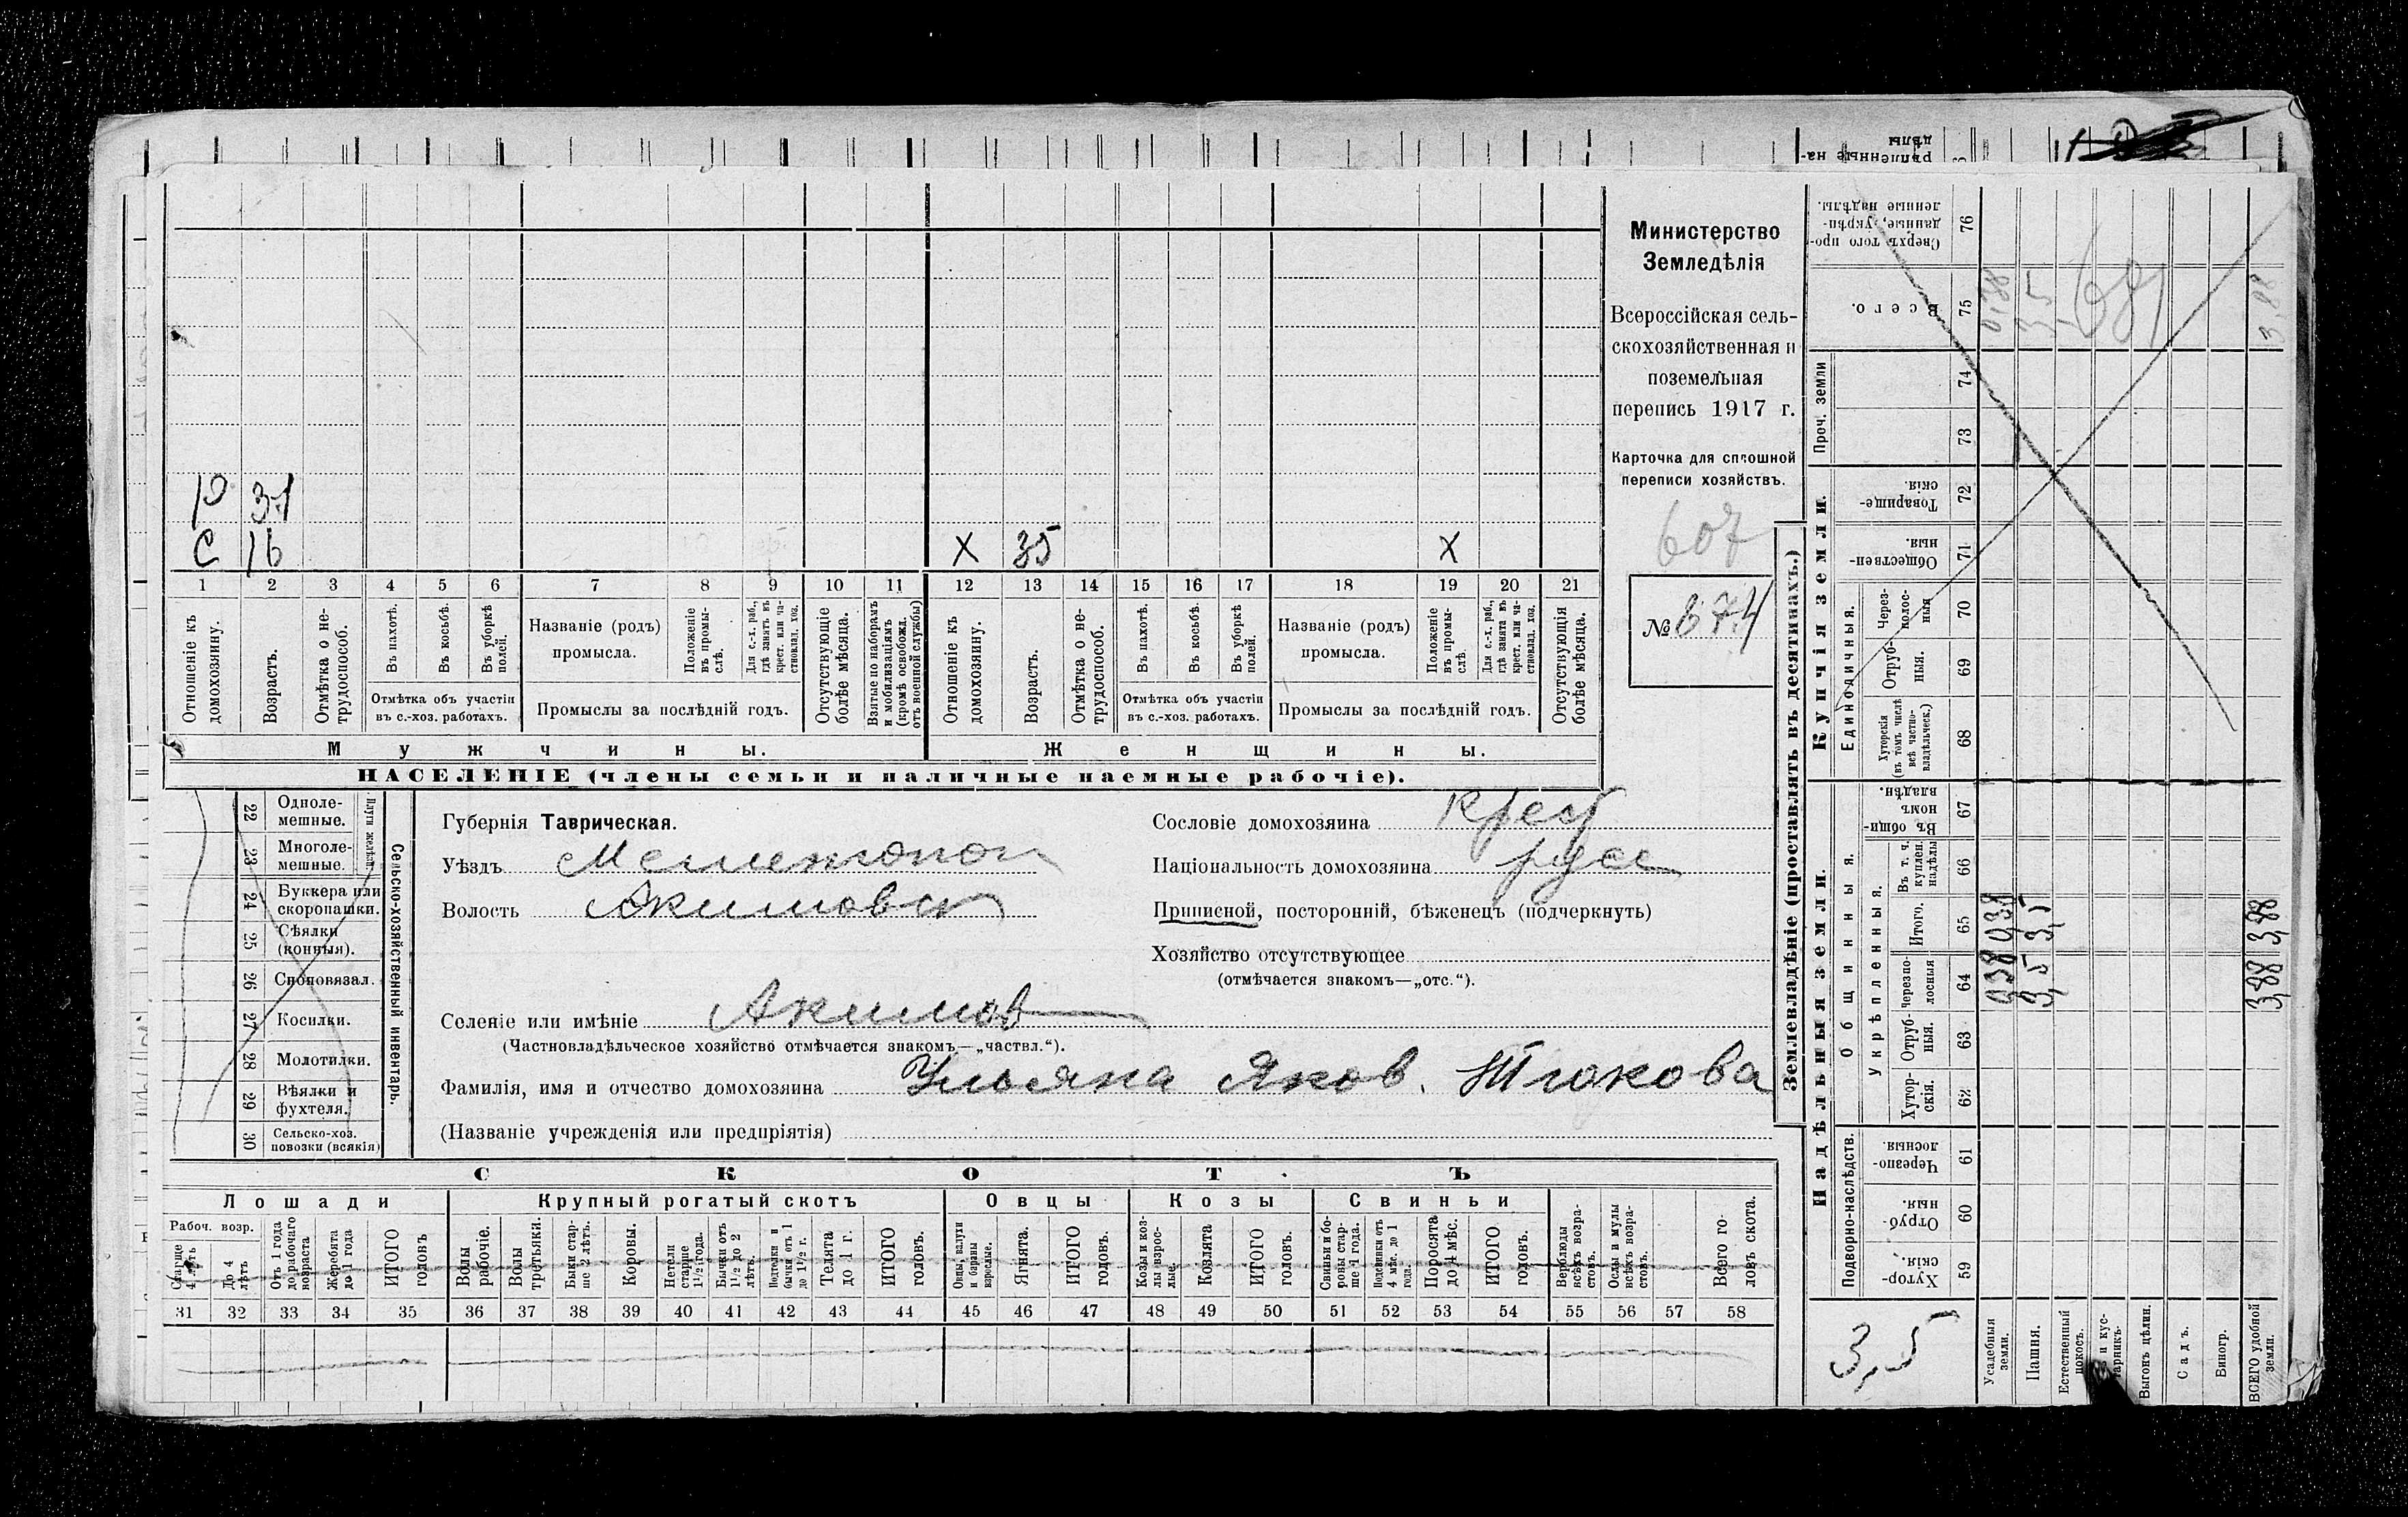 Министерство
Земледѣлія
Всероссійская сель-
скохозяйственная и
поземельная
перепись 1917 г.
Карточка для сплошной
переписи хозяйствъ.
607
№ 674
С 16
Х 35 Х
1 2 3 4 5 6 7 8 9 10 11 12 13 14 15 16 17 18 19 20 21
Отношеніе къ домохозяину.
Возрастъ.
Отмѣтка о не-трудоспособ.
Въ пахотѣ.
Въ косьбѣ.
Въ уборкѣ полей.
Отмѣтка объ участіи
въ с.-хоз. работахъ.
Названіе (родъ)
промысла.
Положеніе въ промы-слѣ.
Для с.-х. раб., гдѣ занятъ въ крест. или ча-стновлад. хоз.
Промыслы за послѣдній годъ.
Отсутствующіе болѣе мѣсяца.
Взятые по наборамъ и мобилизаціямъ (кромѣ освобожд. отъ военной службы)
Отношеніе къ домохозяину.
Возрастъ.
Отмѣтка о не-трудоспособ.
Въ пахотѣ.
Въ косьбѣ.
Въ уборкѣ полей.
Отмѣтка объ участіи
въ с.-хоз. работахъ.
Названіе (родъ)
промысла.
Положеніе въ промы-слѣ.
Для с.-х. раб., гдѣ занята въ крест. или ча-стновлад. хоз.
Промыслы за послѣдній годъ.
Отсутствующія болѣе мѣсяца.
Мужчины.
Женщины.
НАСЕЛЕНІЕ (члены семьи и наличные наемные рабочіе).
22 Одноле-мешные.
23 Многоле-мешные.
24 Буккера или скоропашки.
25 Сѣялки (конныя).
26 Сноповязал.
27 Косилки.
28 Молотилки.
29 Вѣялки и фухтеля.
30 Сельско-хоз. повозки (всякія)
Сельско-хозяйственный инвентарь.
Губернія Таврическая.
Уѣздъ Мелитопол
Волость Акимовск
Сословіе домохозяина Крест
Національность домохозяина русс
Приписной, посторонній, бѣженецъ (подчеркнуть)
Хозяйство отсутствующее
(отмѣчается знакомъ—„отс.“).
Селеніе или имѣніе Акимов
(Частновладѣльческое хозяйство отмѣчается знакомъ—„частвл.“).
Фамилія, имя и отчество домохозяина Ульяна Яков. Тюкова
(Названіе учрежденія или предпріятія)
СКОТЪ
Лошади
Крупный рогатый скотъ
Овцы
Козы
Свиньи
Рабоч. возр.
Старше 4 лѣтъ
До 4 лѣтъ
Отъ 1 года до рабочаго возраста
Жеребята до 1 года
ИТОГО головъ
Волы рабочіе.
Волы третьяки.
Быки стар-ше 2 лѣтъ.
Коровы.
Нетели старше 1½ года.
Бычки отъ 1½ до 2 лѣтъ.
Подтелки и бычки отъ 1 до 1½ г.
Телята до 1 г.
ИТОГО головъ.
Овцы, валухи и бараны взрослые.
Ягнята.
ИТОГО головъ.
Козы и коз-лы взрос-лые.
Козлята
ИТОГО головъ.
Свиньи и бо-ровы стар-ше 1 года.
Подсвинки отъ 4 мѣс. до 1 года.
Поросята до 4 мѣс.
ИТОГО головъ.
Верблюды всѣхъ возра-стовъ.
Ослы и мулы всѣхъ возра-стовъ.
Всего го-ловъ скота.
31 32 33 34 35 36 37 38 39 40 41 42 43 44 45 46 47 48 49 50 51 52 53 54 55 56 57 58
Землевладѣніе (проставлять въ десятинахъ.)
Купчія земли.
Надѣльныя земли.
Сверхъ того про-данные, укрѣп-ленные надѣлы. 76
Всего. 75
0,38
3,5
3,88
Проч. земли
74
73
Товарище-скія. 72
Обществен-ныя. 71
Единоличныя.
Через-полос-ныя 70
Отруб-ныя. 69
Хуторскія (въ томъ числѣ всѣ частно-владѣльческ.) 68
Общинныя.
Въ общин-номъ владѣн. 67
Укрѣпленныя.
Въ т. ч. куплен. надѣлы 66
Итого. 65
0,38
3,5
3,88
Черезпо-лосныя 64
0,38
3,5
3,88
Отруб-ныя. 63
Хутор-скія. 62
Подворно-наслѣдств.
Черезпо-лосныя. 61
Отруб-ныя. 60
Хутор-скія. 59
3,5
Усадебныя земли.
Пашня.
Естественный покосъ.
Выгонъ цѣлин.
Садъ.
Виногр.
ВСЕГО удобной земли.